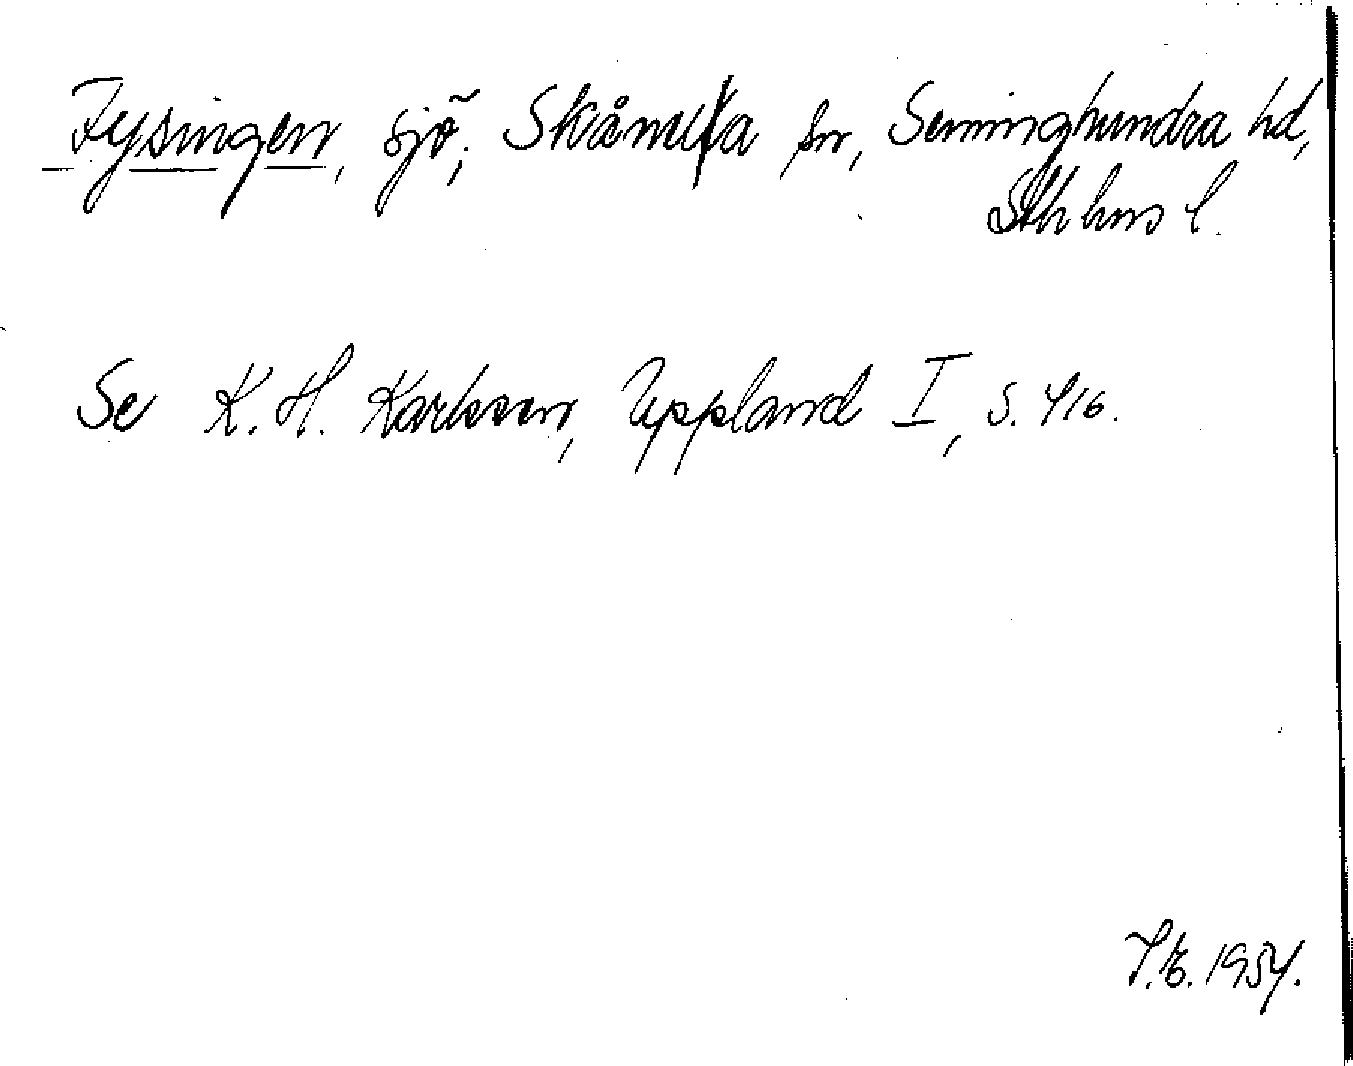 Fysingen, sjö, Skånella sn, Seminghundra hd,
Sthlms l.
Se K. H. Karlsson, Uppland I, s. 416.
T.E. 1954.